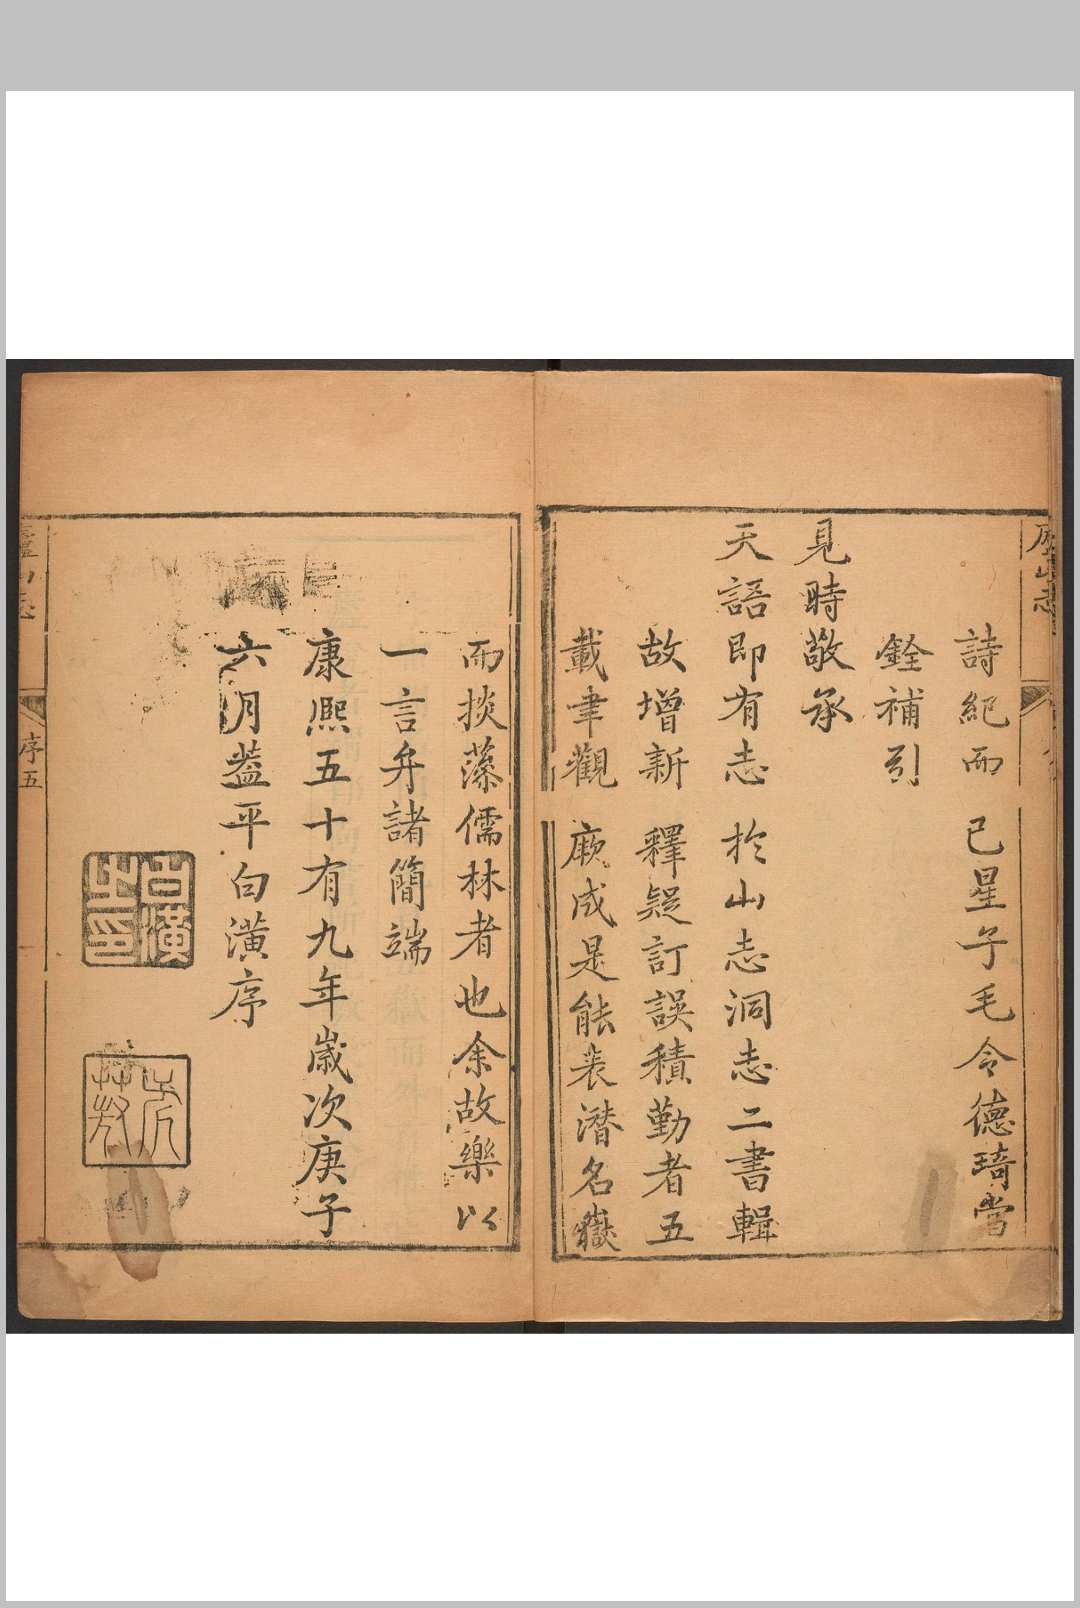 廬山志
詩紀而已星子毛令德琦當
銓補引
見時敬承
天語即有志於山志洞志二書輯
故增新釋疑訂誤積勤者五
載聿觀厥成是能裴潛名嶽
而掞藻儒林者也余故樂以
一言弁諸簡端
康熙五十有九年歲次庚子
六月蓋平白潢序
白潢之印
廬山志
序五